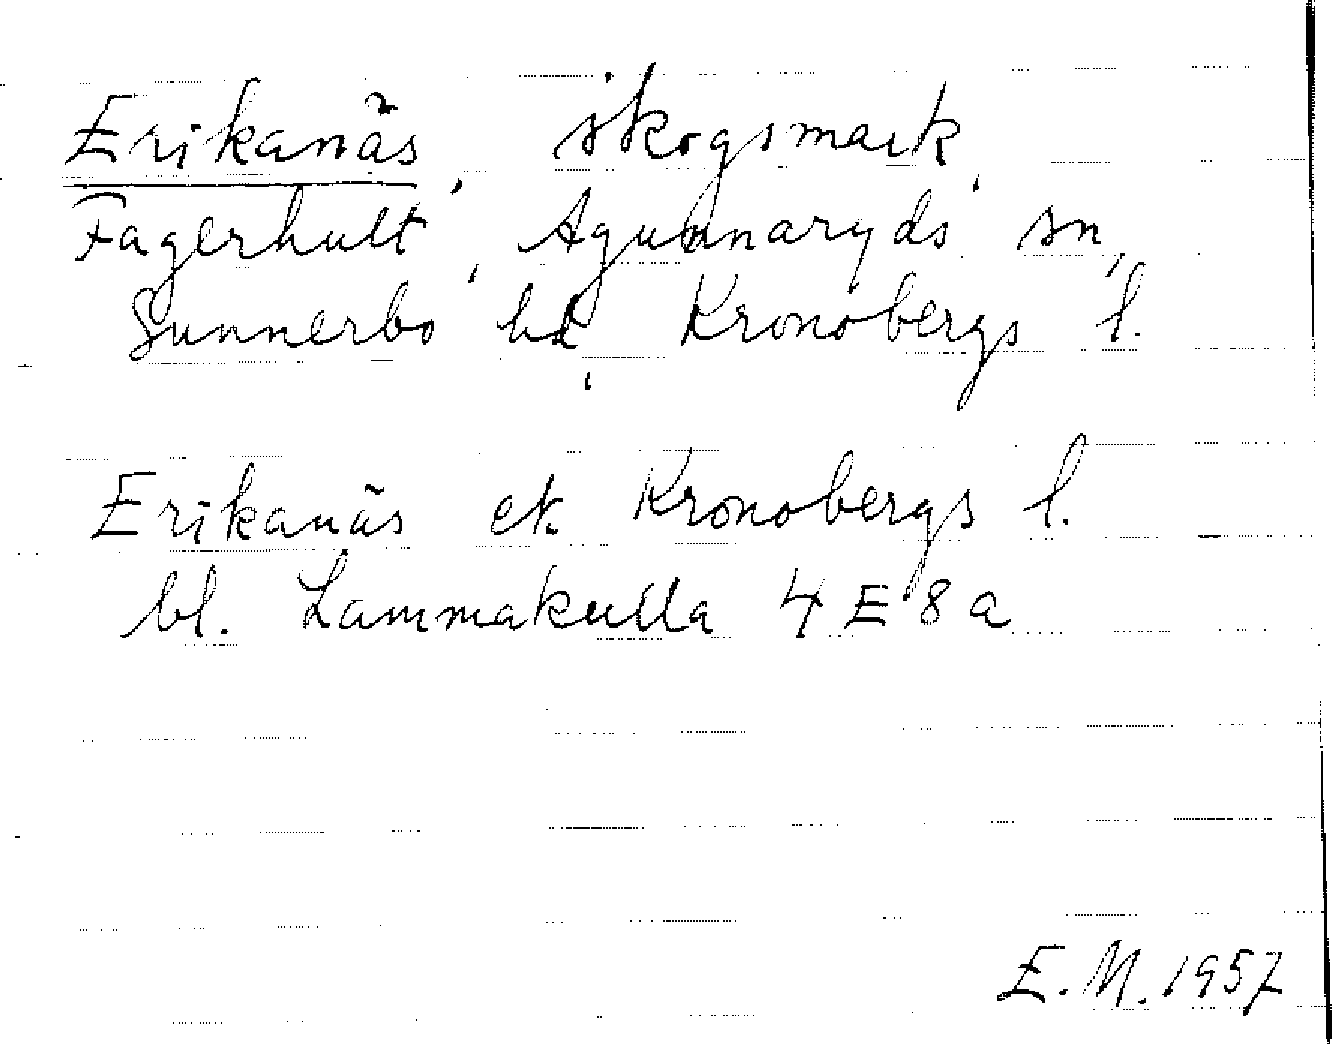 Erikanäs, skogsmark,
Fagerhult, Agunnaryds sn,
Sunnerbo hd, Kronobergs l.
Erikanäs ek. Kronobergs l.
bl. Lammakulla 4 E 8 a
E. M. 1957